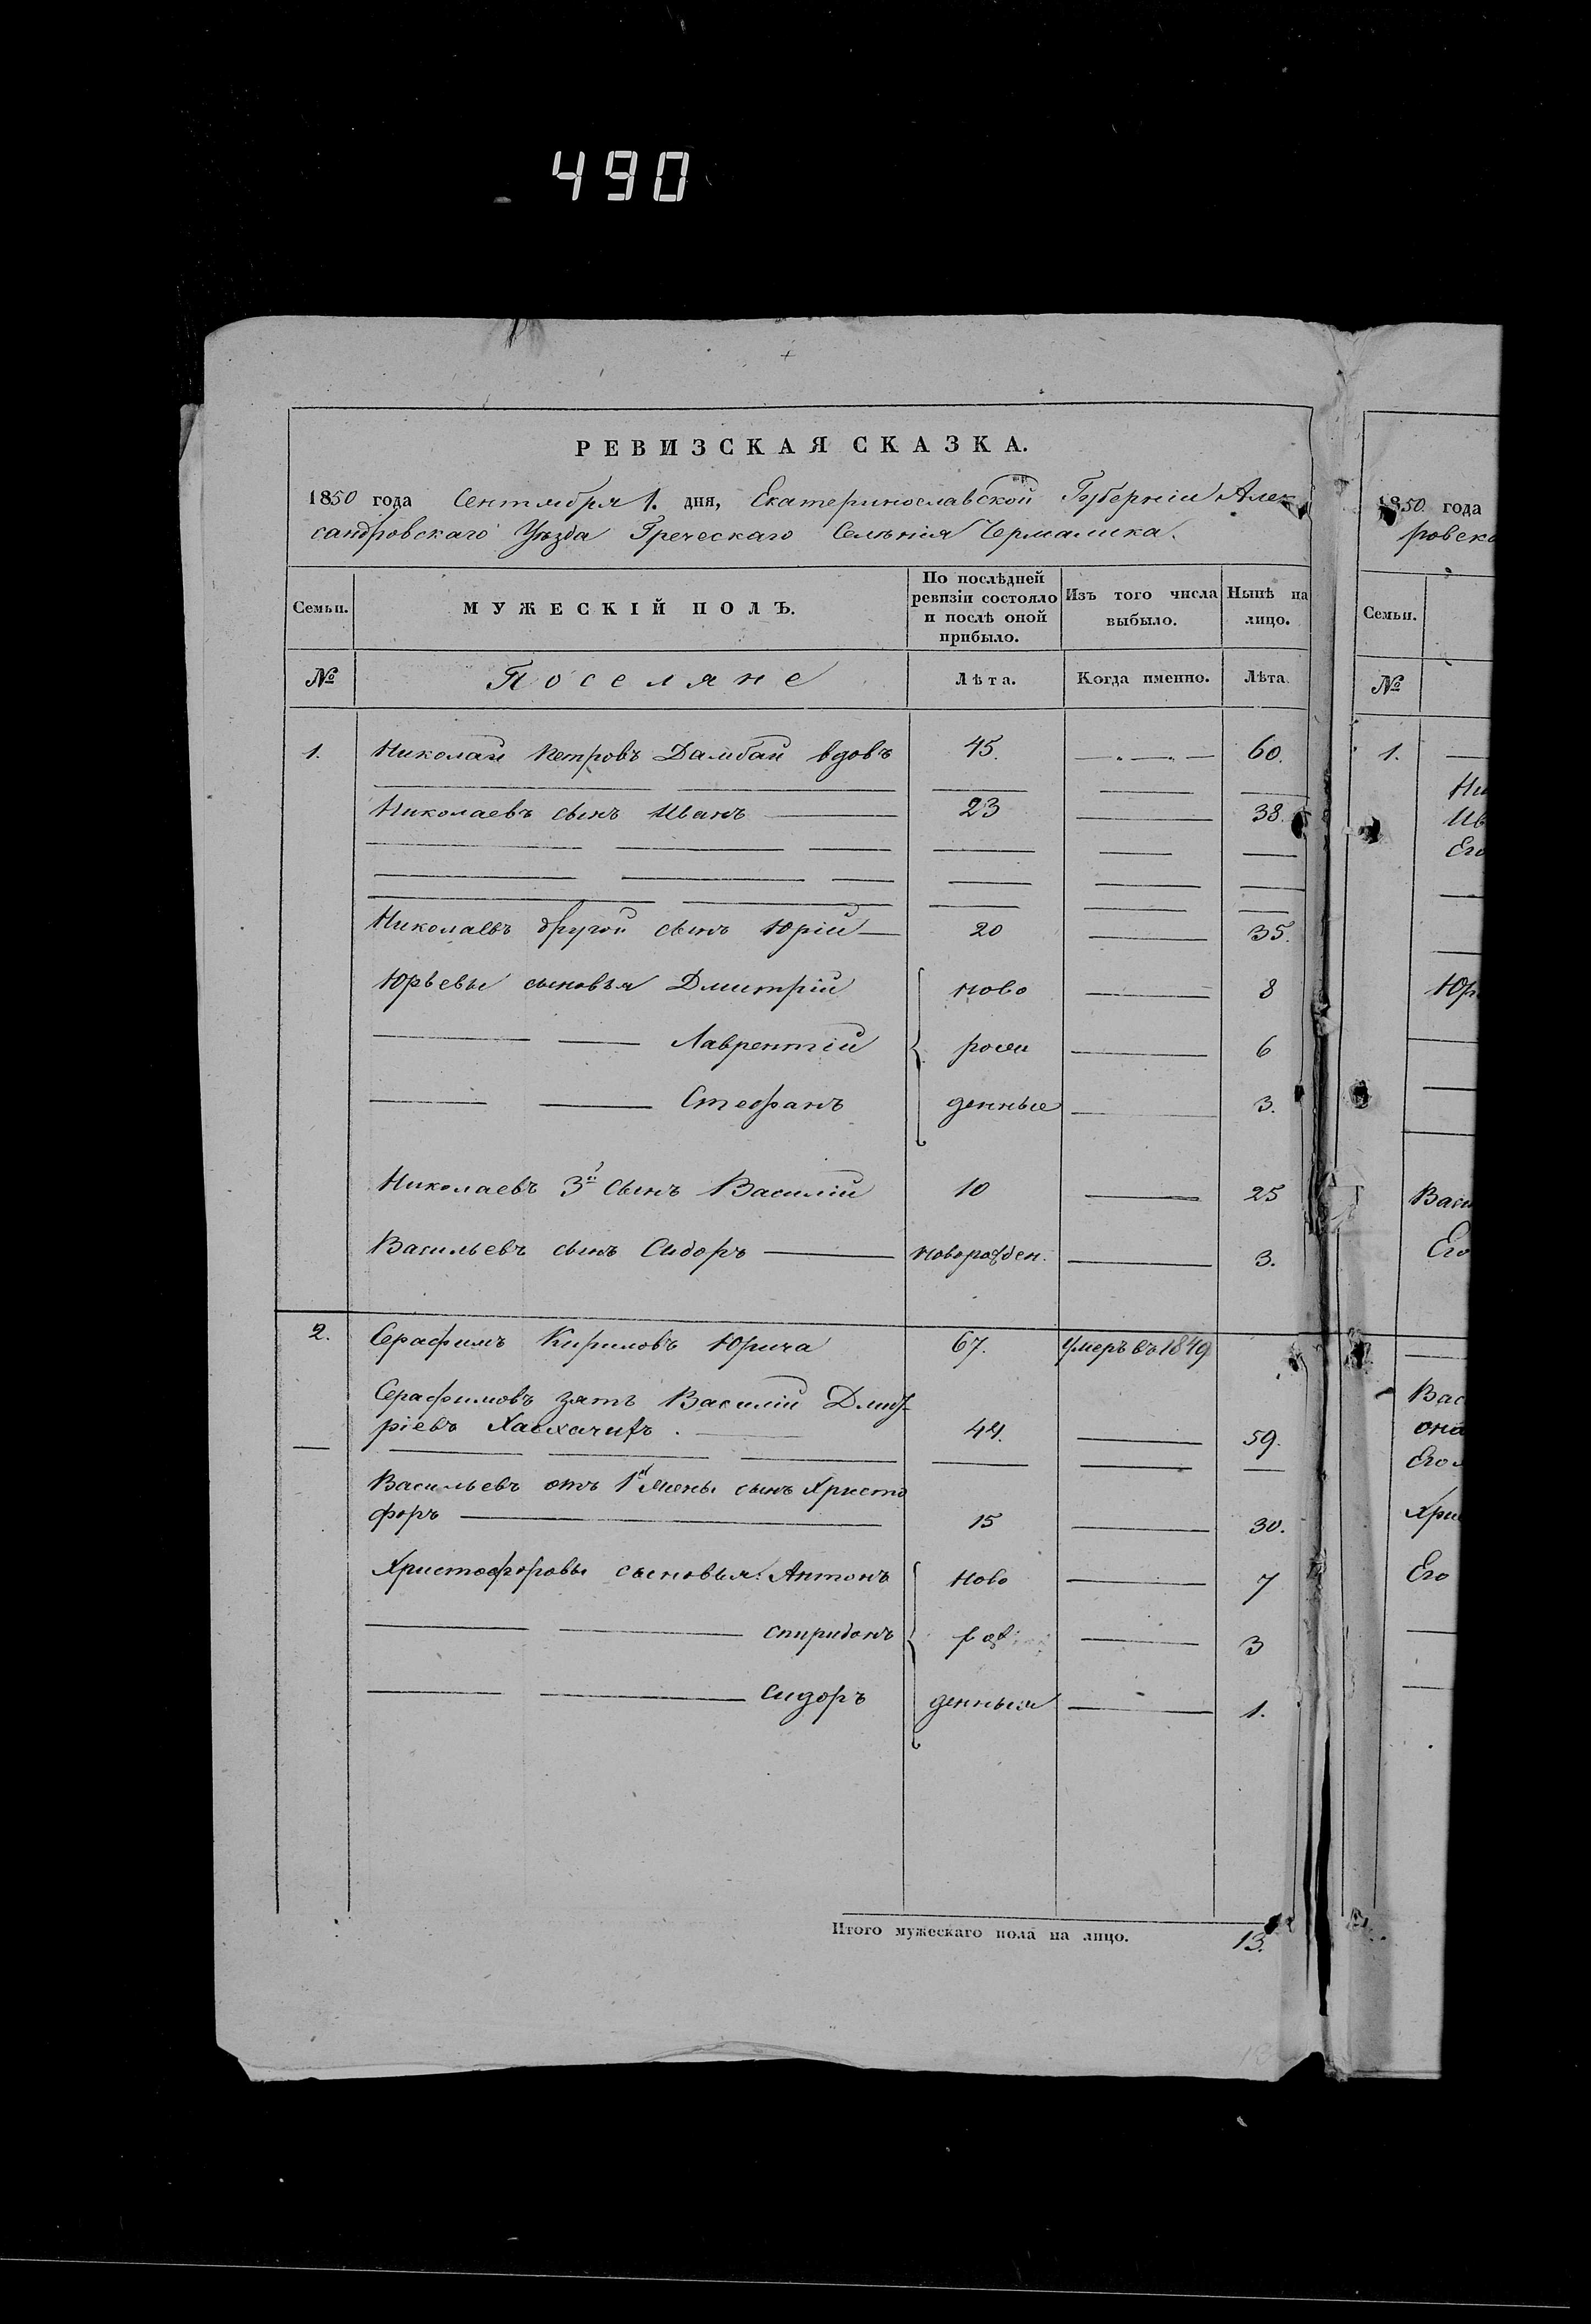 490
РЕВИЗСКАЯ СКАЗКА.
1850 года Сентября 1. дня, Екатеринославской Губерніи Алек
сандровскаго Уѣзда Греческаго Селѣнія Чермалика.
Семьи. МУЖЕСКІЙ ПОЛЪ. По послѣдней ревизіи состояло и послѣ оной прибыло. Изъ того числа выбыло. Нынѣ на лицо.
№ Поселяне Лѣта. Когда именно. Лѣта
1. Николай Петровъ Дамбай вдовъ 45. 60.
Николаевъ сынъ Иванъ 23 38.
Николаевъ другой сынъ Юрій 20 35.
Юрьевы сыновья Дмитрій ново 8
Лаврентій рож 6
Стефанъ денные 3.
Николаевъ 3й сынъ Василій 10 25
Васильевъ сынъ Сидоръ новорожден. 3.
2. Серафимъ Кириловъ Юрича 67. Умеръ въ 1849
Серафимовъ зять Василій Дмит
ріевъ 44. 59.
Васильевъ отъ 1й жены сынъ Христо
форъ 15 30.
Христофоровы сыновья: Антонъ ново 7
Спиридонъ рож 3
Сидоръ денныя 1.
Итого мужескаго пола на лицо. 13.
1850 года
ровска
Семьи.
№
1.
Ни
Ив
Его
Юр
Васи
Его
Вас
она
Его
Хри
Его